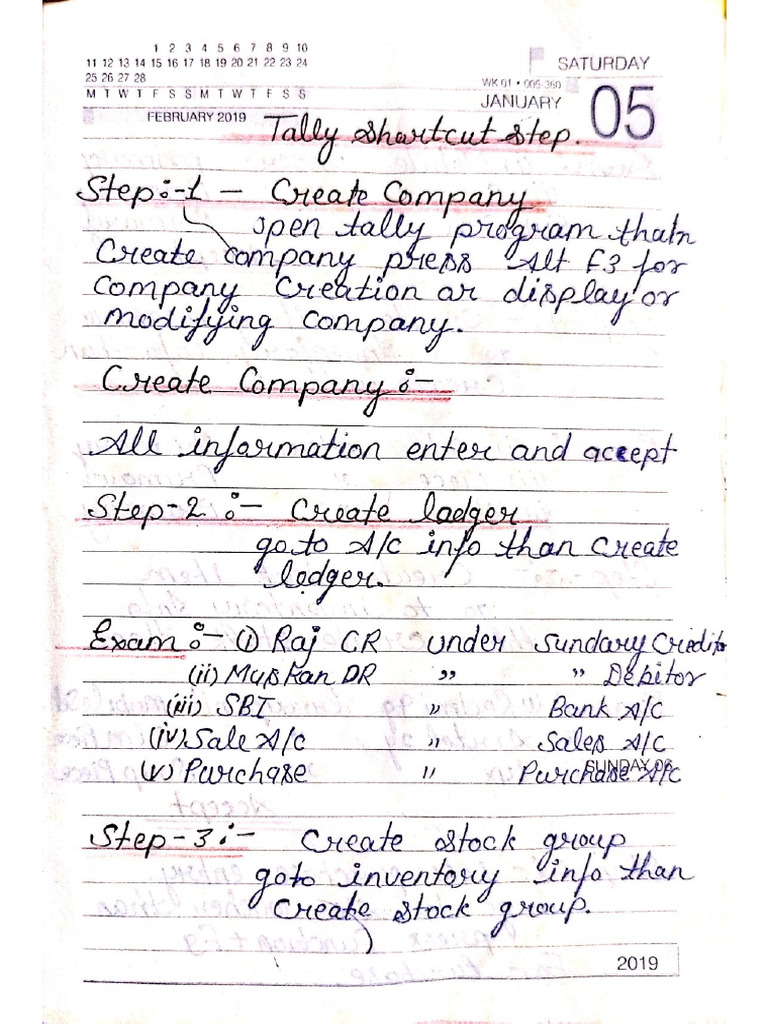 1 2 3 4 5 6 7 8 9 10
11 12 13 14 15 16 17 18 19 20 21 22 23 24
25 26 27 28
M T W T F S S M T W T F S S
FEBRUARY 2019
SATURDAY
WK 01 • 005-360
JANUARY
05
Tally Shartcut Step.
Step:-1 - Create Company
open tally program thatn
Create company press Alt F3 for
Company Creation or display or
modifying company.
Create Company :-
All information enter and accept
Step-2 :- Create ladger
go to A/c info than Create
ledger.
Exam :- (i) Raj CR under Sundary Creditor
(ii) Muskan DR " " Debitor
(iii) SBI " Bank A/C
(iv) Sale A/C " Sales A/C
(v) Purchase " Purchase A/C
SUNDAY 06
Step-3 :- Create Stock group
goto inventory info than
Create Stock group.
2019